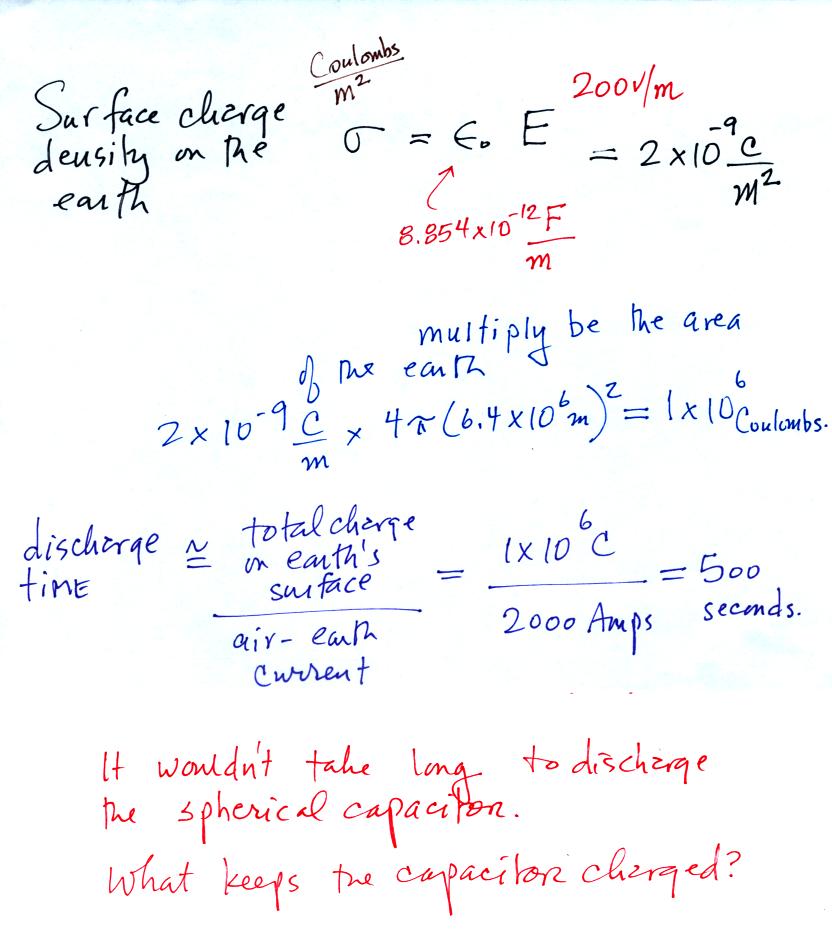 Coulombs
m²
200 V/m
Surface charge
density on the
earth
σ = ϵ₀ E = 2 x 10⁻⁹ C/m²
8.854 x 10⁻¹² F/m
multiply be the area
of the earth
2 x 10⁻⁹ C/m x 4π (6.4 x 10⁶ m)² = 1 x 10⁶ Coulombs.
discharge time ≅ total charge on earth's surface / air-earth current = 1 x 10⁶ C / 2000 Amps = 500 seconds.
It wouldn't take long to discharge
the spherical capacitor.
What keeps the capacitor charged?